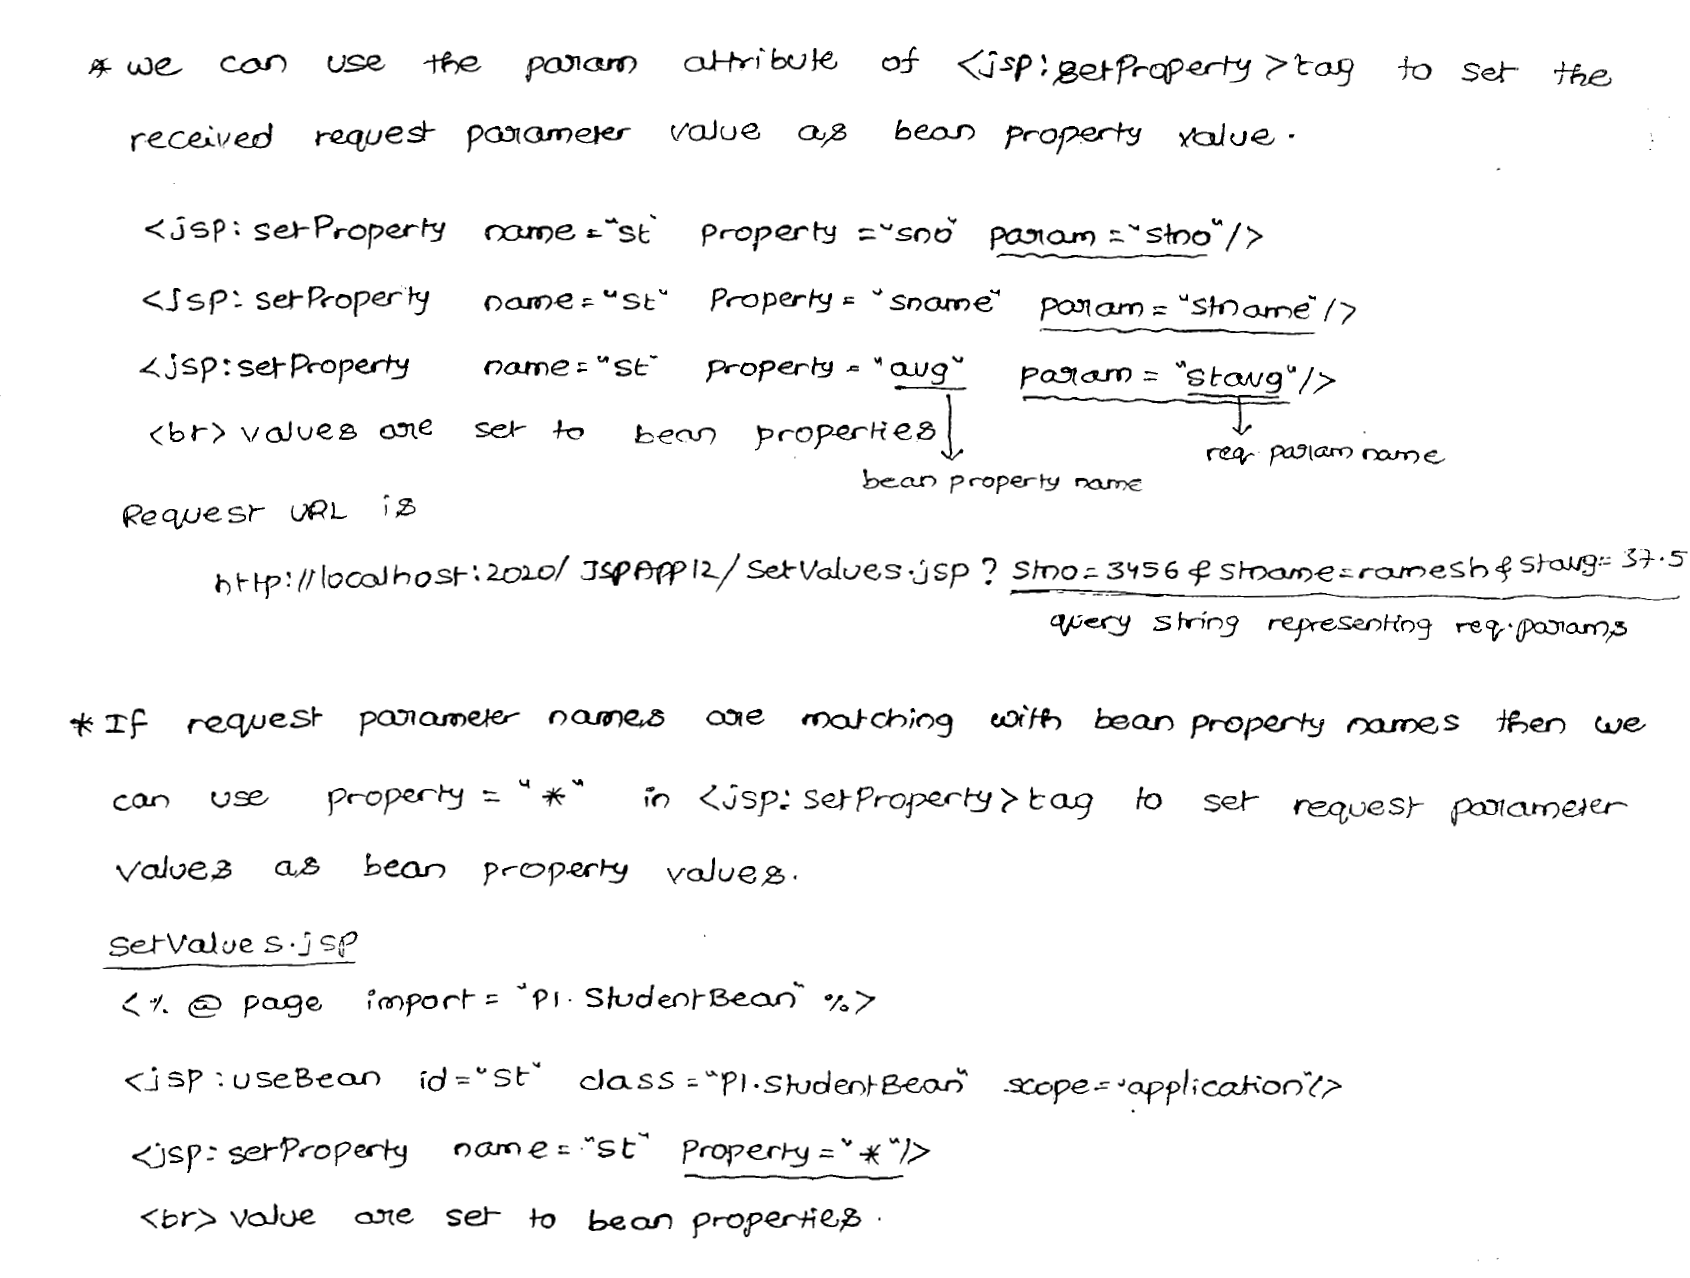 * we can use the param attribute of <jsp:getProperty>tag to set the
received request parameter value as bean property value.
<jsp:setProperty name="st" property="sno" param="stno"/>
<jsp:setProperty name="st" Property="sname" param="stname"/>
<jsp:setProperty name="st" property="avg" param="stavg"/>
<br> values are set to bean properties
req param name
bean property name
Request URL is
http://localhost:2020/JSPAPP12/SetValues.jsp?stno=3456&stname=ramesh&stavg=37.5
query string representing req.params
* If request parameter names are matching with bean property names then we
can use property="*" in <jsp:setProperty>tag to set request parameter
values as bean property values.
SetValues.jsp
<%@page import="P1.StudentBean"%>
<jsp:useBean id="st" class="P1.StudentBean" scope="application"/>
<jsp:setProperty name="st" Property="*"/>
<br> value are set to bean properties.